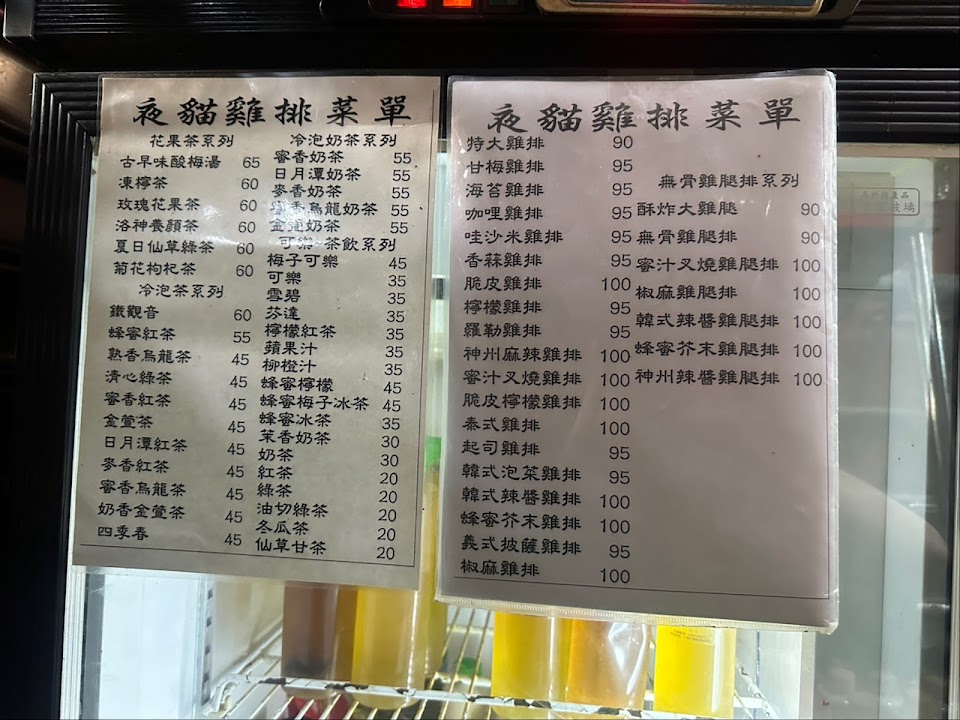 夜貓雞排菜單
花果茶系列
古早味酸梅湯 65
凍檸茶 60
玫瑰花果茶 60
洛神養顏茶 60
夏日仙草綠茶 60
菊花枸杞茶 60
冷泡茶系列
鐵觀音 60
蜂蜜紅茶 55
熟香烏龍茶 45
清心綠茶 45
蜜香紅茶 45
金萱茶 45
日月潭紅茶 45
麥香紅茶 45
蜜香烏龍茶 45
奶香金萱茶 45
四季春 45
冷泡奶茶系列
蜜香奶茶 55
日月潭奶茶 55
麥香奶茶 55
蜜香烏龍奶茶 55
金萱奶茶 55
可樂·茶飲系列
梅子可樂 45
可樂 35
雪碧 35
芬達 35
檸檬紅茶 35
蘋果汁 35
柳橙汁 35
蜂蜜檸檬 45
蜂蜜梅子冰茶 45
蜂蜜冰茶 35
茉香奶茶 30
奶茶 30
紅茶 20
綠茶 20
油切綠茶 20
冬瓜茶 20
仙草甘茶 20
夜貓雞排菜單
特大雞排 90
甘梅雞排 95
海苔雞排 95
咖哩雞排 95
哇沙米雞排 95
香蒜雞排 95
脆皮雞排 100
檸檬雞排 95
羅勒雞排 95
神州麻辣雞排 100
蜜汁叉燒雞排 100
脆皮檸檬雞排 100
泰式雞排 100
起司雞排 95
韓式泡菜雞排 95
韓式辣醬雞排 100
蜂蜜芥末雞排 100
義式披薩雞排 95
椒麻雞排 100
無骨雞腿排系列
酥炸大雞腿 90
無骨雞腿排 90
蜜汁叉燒雞腿排 100
椒麻雞腿排 100
韓式辣醬雞腿排 100
蜂蜜芥末雞腿排 100
神州辣醬雞腿排 100